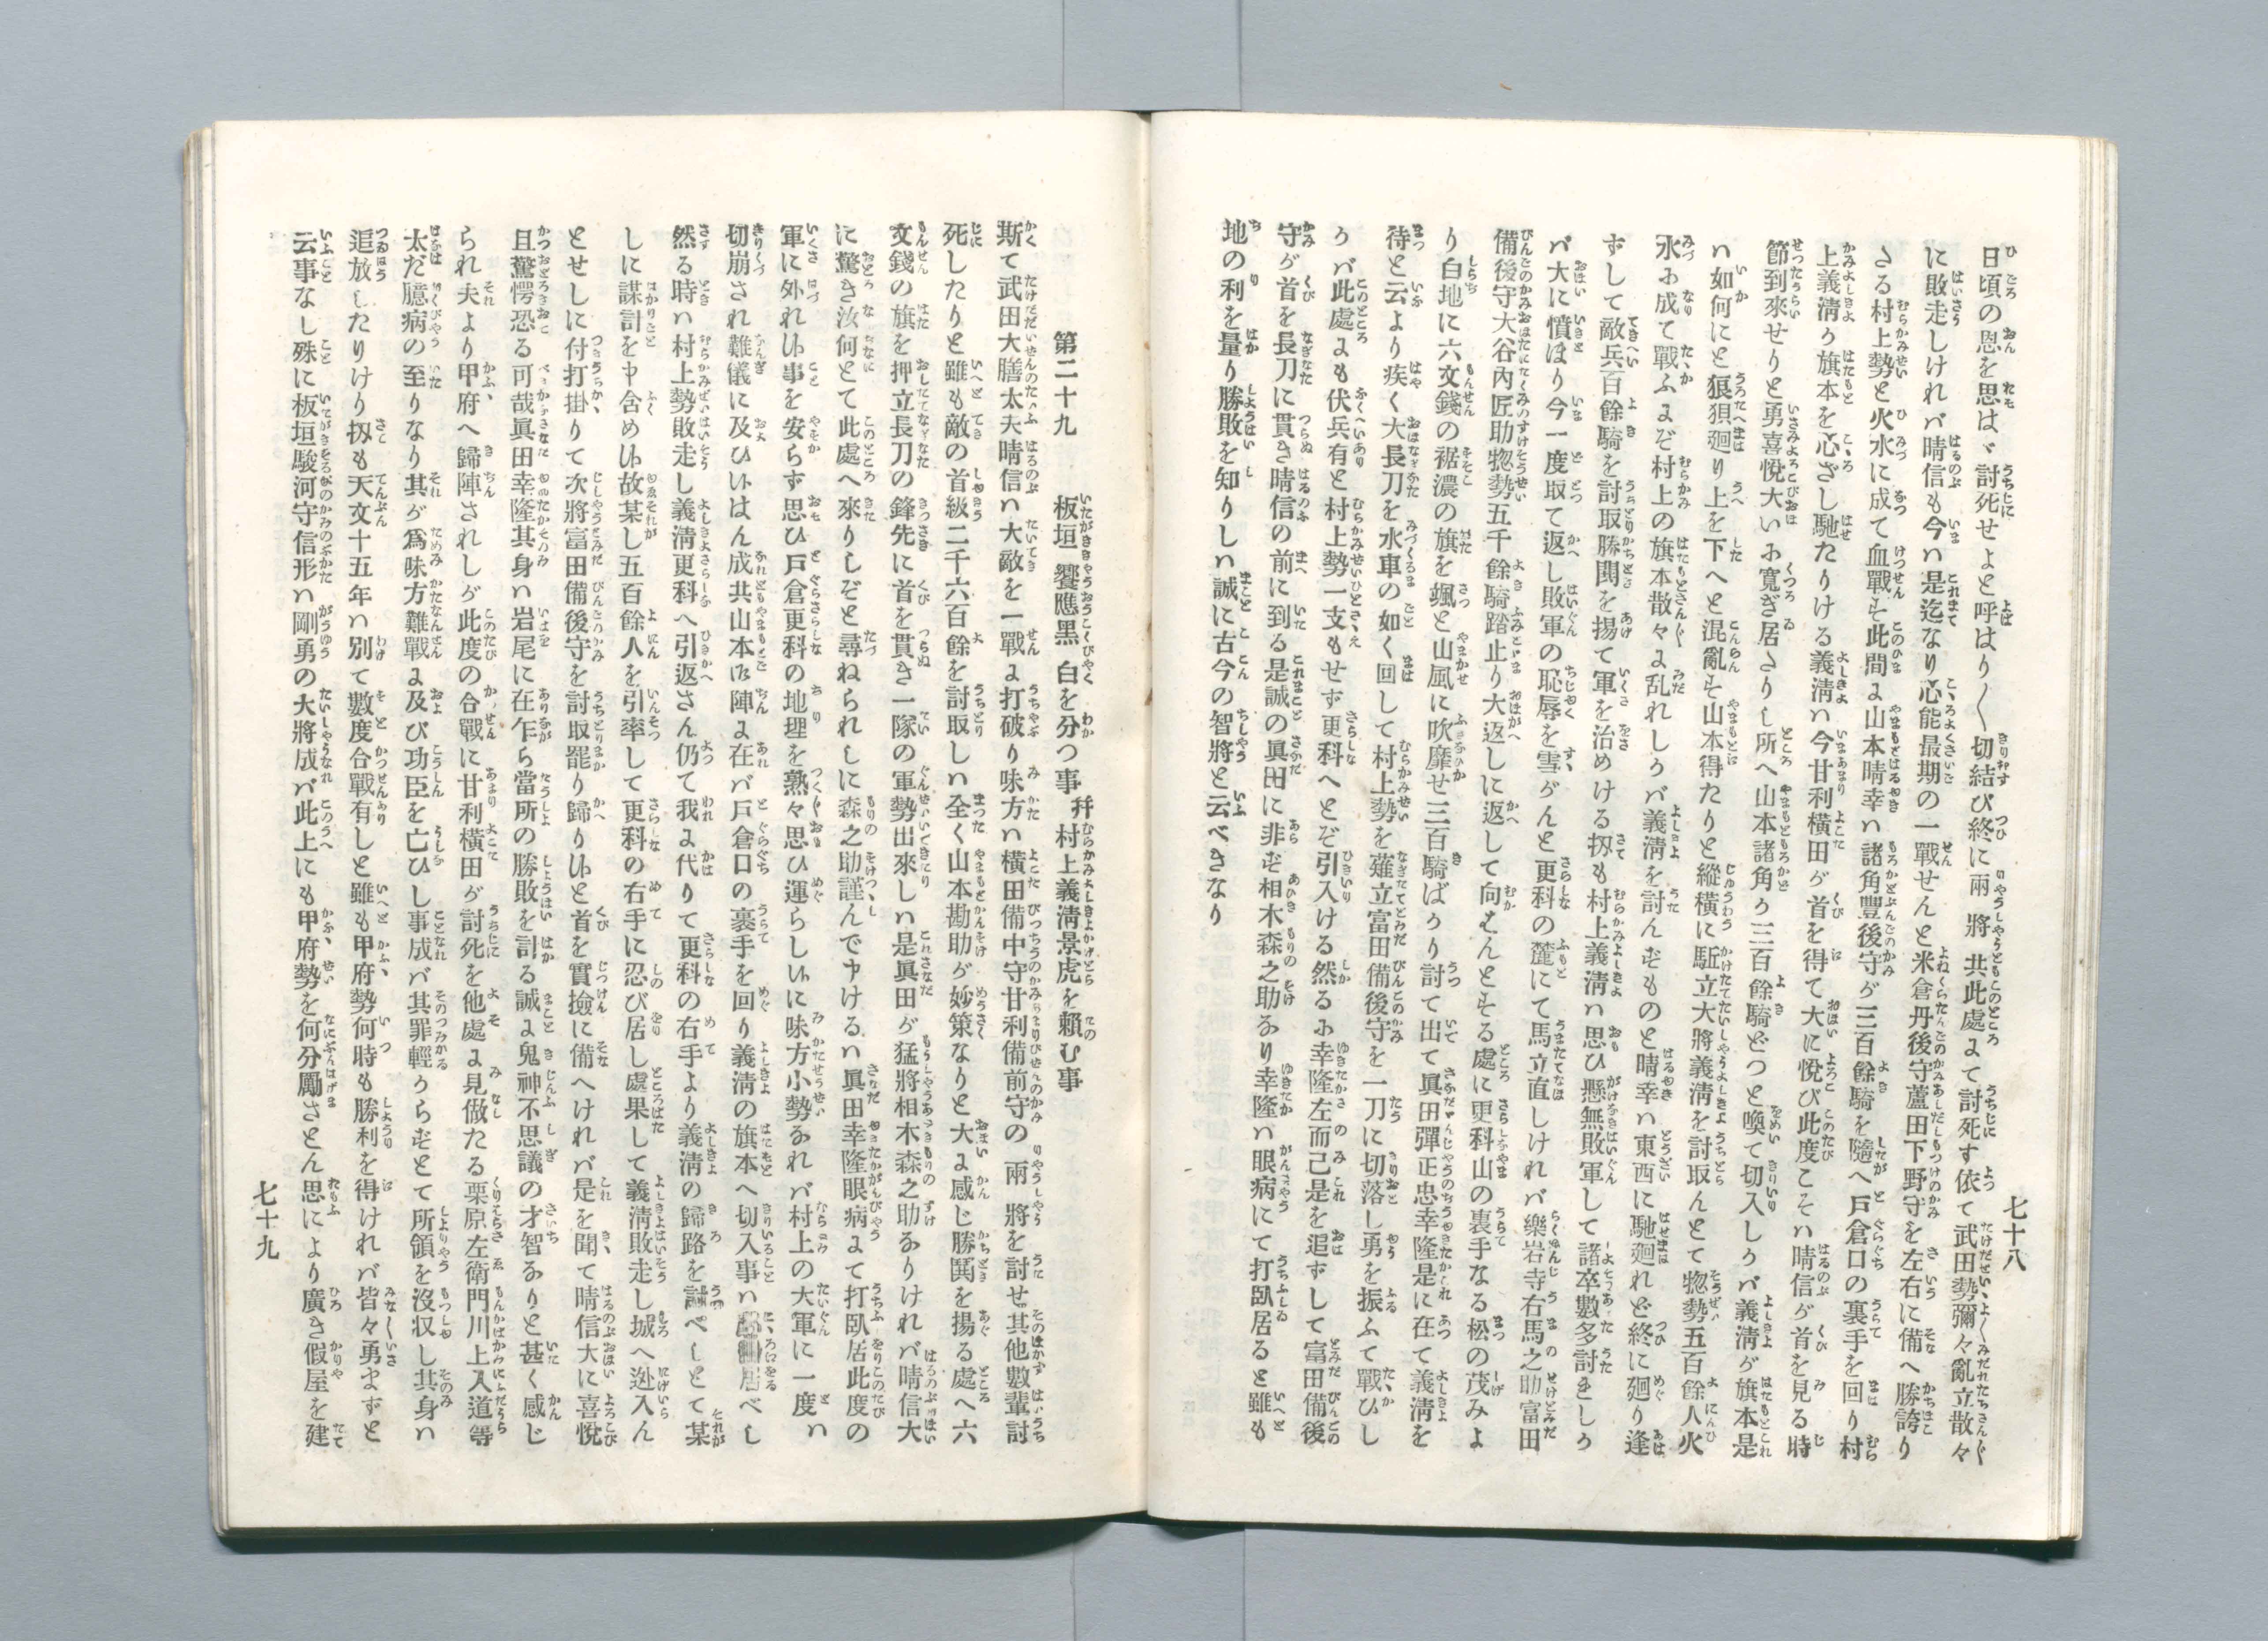 七十八
日頃の恩を思はゞ討死せよと呼はり〱切結び終に兩將共此處よて討死す依て武田勢彌々亂立散々
に敗走しけれバ晴信も今ハ是迄なり心能最期の一戰せんと米倉丹後守蘆田下野守を左右に備へ勝誇り
さる村上勢と火水に成て血戰す此間よ山本晴幸ハ諸角豐後守が三百餘騎を隨へ戸倉口の裏手を回り村
上義淸か旗本を心ざし馳たりける義淸ハ今甘利橫田が首を得て大に悅び此度こそハ晴信が首を見る時
節到來せりと勇喜悅大いに寬ぎ居さりし所へ山本諸角か三百餘騎どつと喚て切入しかバ義淸が旗本是
ハ如何にと狼狽廻り上を下へと混亂す山本得たりと縱橫に駈立大將義淸を討取んとて惣勢五百餘人火
水に成て戰ふよぞ村上の旗本散々よ乱れしかバ義淸を討んずものと晴幸ハ東西に馳廻れど終に廻り逢
ずして敵兵百餘騎を討取勝閧を揚て軍を治めける扨も村上義淸ハ思ひ懸無敗軍して諸卒數多討きしか
バ大に憤ほり今一度取て返し敗軍の恥辱を雪がんと更科の麓にて馬立直しけれバ樂岩寺右馬之助富田
備後守大谷內匠助惣勢五千餘騎踏止り大返しに返して向はんとする處に更科山の裏手なる松の茂みよ
り白地に六文錢の裾濃の旗を颯と山風に吹靡せ三百騎ばかり討て出て眞田彈正忠幸隆是に在て義淸を
待と云より疾く大長刀を水車の如く回して村上勢を薙立富田備後守を一刀に切落し勇を振ふて戰ひし
かバ此處よも伏兵有と村上勢一支もせず更科へとぞ引入ける然るに幸隆左而己是を追ずして富田備後
守が首を長刀に貫き晴信の前に到る是誠の眞田に非ず相木森之助なり幸隆ハ眼病にて打臥居ると雖も
地の利を量り勝敗を知りしハ誠に古今の智將と云べきなり
第二十九　板垣饗應黑白を分つ事幷村上義淸景虎を賴む事
斯て武田大膳太夫晴信ハ大敵を一戰よ打破り味方ハ橫田備中守甘利備前守の兩將を討せ其他數輩討
死したりと雖も敵の首級二千六百餘を討取しハ全く山本勘助が妙策なりと大よ感じ勝鬨を揚る處へ六
文錢の旗を押立長刀の鋒先に首を貫き一隊の軍勢出來しハ是眞田が猛將相木森之助なりけれバ晴信大
に驚き汝何とて此處へ來りしぞと尋ねられしに森之助謹んで申けるハ眞田幸隆眼病よて打臥居此度の
軍に外れ候事を安らず思ひ戸倉更科の地理を熟々思ひ運らし候に味方小勢なれバ村上の大軍に一度ハ
切崩され難儀に及ひ候はん成共山本に陣よ在バ戸倉口の裏手を回り義淸の旗本へ切入事ハ居べし
然る時ハ村上勢敗走し義淸更科へ引返さん仍て我よ代りて更科の右手より義淸の歸路を討べしとて某
しに謀計を申含め候故某し五百餘人を引率して更科の右手に忍び居し處果して義淸敗走し城へ迯入ん
とせしに付打掛りて次將富田備後守を討取罷り歸り候と首を實撿に備へけれバ是を聞て晴信大に喜悅
且驚愕恐る可哉眞田幸隆其身ハ岩尾に在乍ら當所の勝敗を計る誠よ鬼神不思議の才智なりと甚く感じ
られ夫より甲府へ歸陣されしが此度の合戰に甘利橫田が討死を他處よ見做たる栗原左衛門川上入道等
太だ臆病の至りなり其が爲味方難戰よ及び功臣を亡ひし事成バ其罪輕からずとて所領を沒収し其身ハ
追放したりけり扨も天文十五年ハ別て數度合戰有しと雖も甲府勢何時も勝利を得けれバ皆々勇まずと
云事なし殊に板垣駿河守信形ハ剛勇の大將成バ此上にも甲府勢を何分勵さとん思により廣き假屋を建
七十九